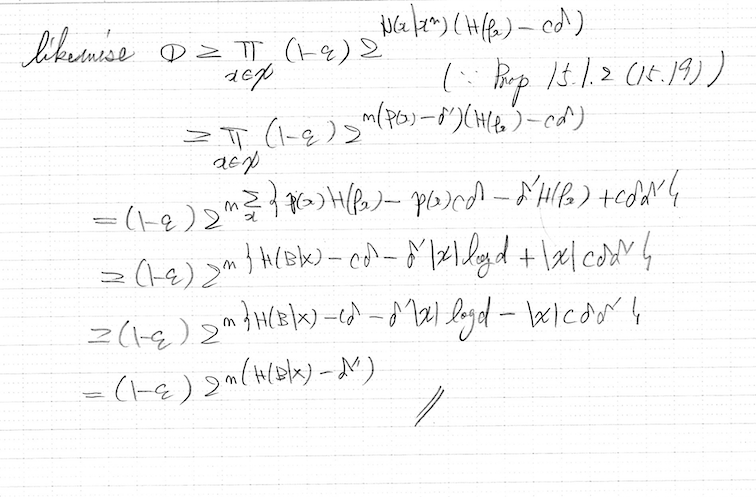 likewise ① ≥ ∏_{x∈𝒳} (1-ε) 2^{N(x|x^n)(H(ρ_x) - cδ)}
(∵ Prop 15.1.2 (15.19))
≥ ∏_{x∈𝒳} (1-ε) 2^{n(p(x)-δ')(H(ρ_x) - cδ)}
= (1-ε) 2^{n Σ_x {p(x)H(ρ_x) - p(x)cδ - δ'H(ρ_x) + cδδ'}}
≥ (1-ε) 2^{n{H(B|X) - cδ - δ'|𝒳| log d + |𝒳|cδδ'}}
≥ (1-ε) 2^{n{H(B|X) - cδ - δ'|𝒳| log d - |𝒳|cδδ'}}
= (1-ε) 2^{n(H(B|X) - δ'')}
//